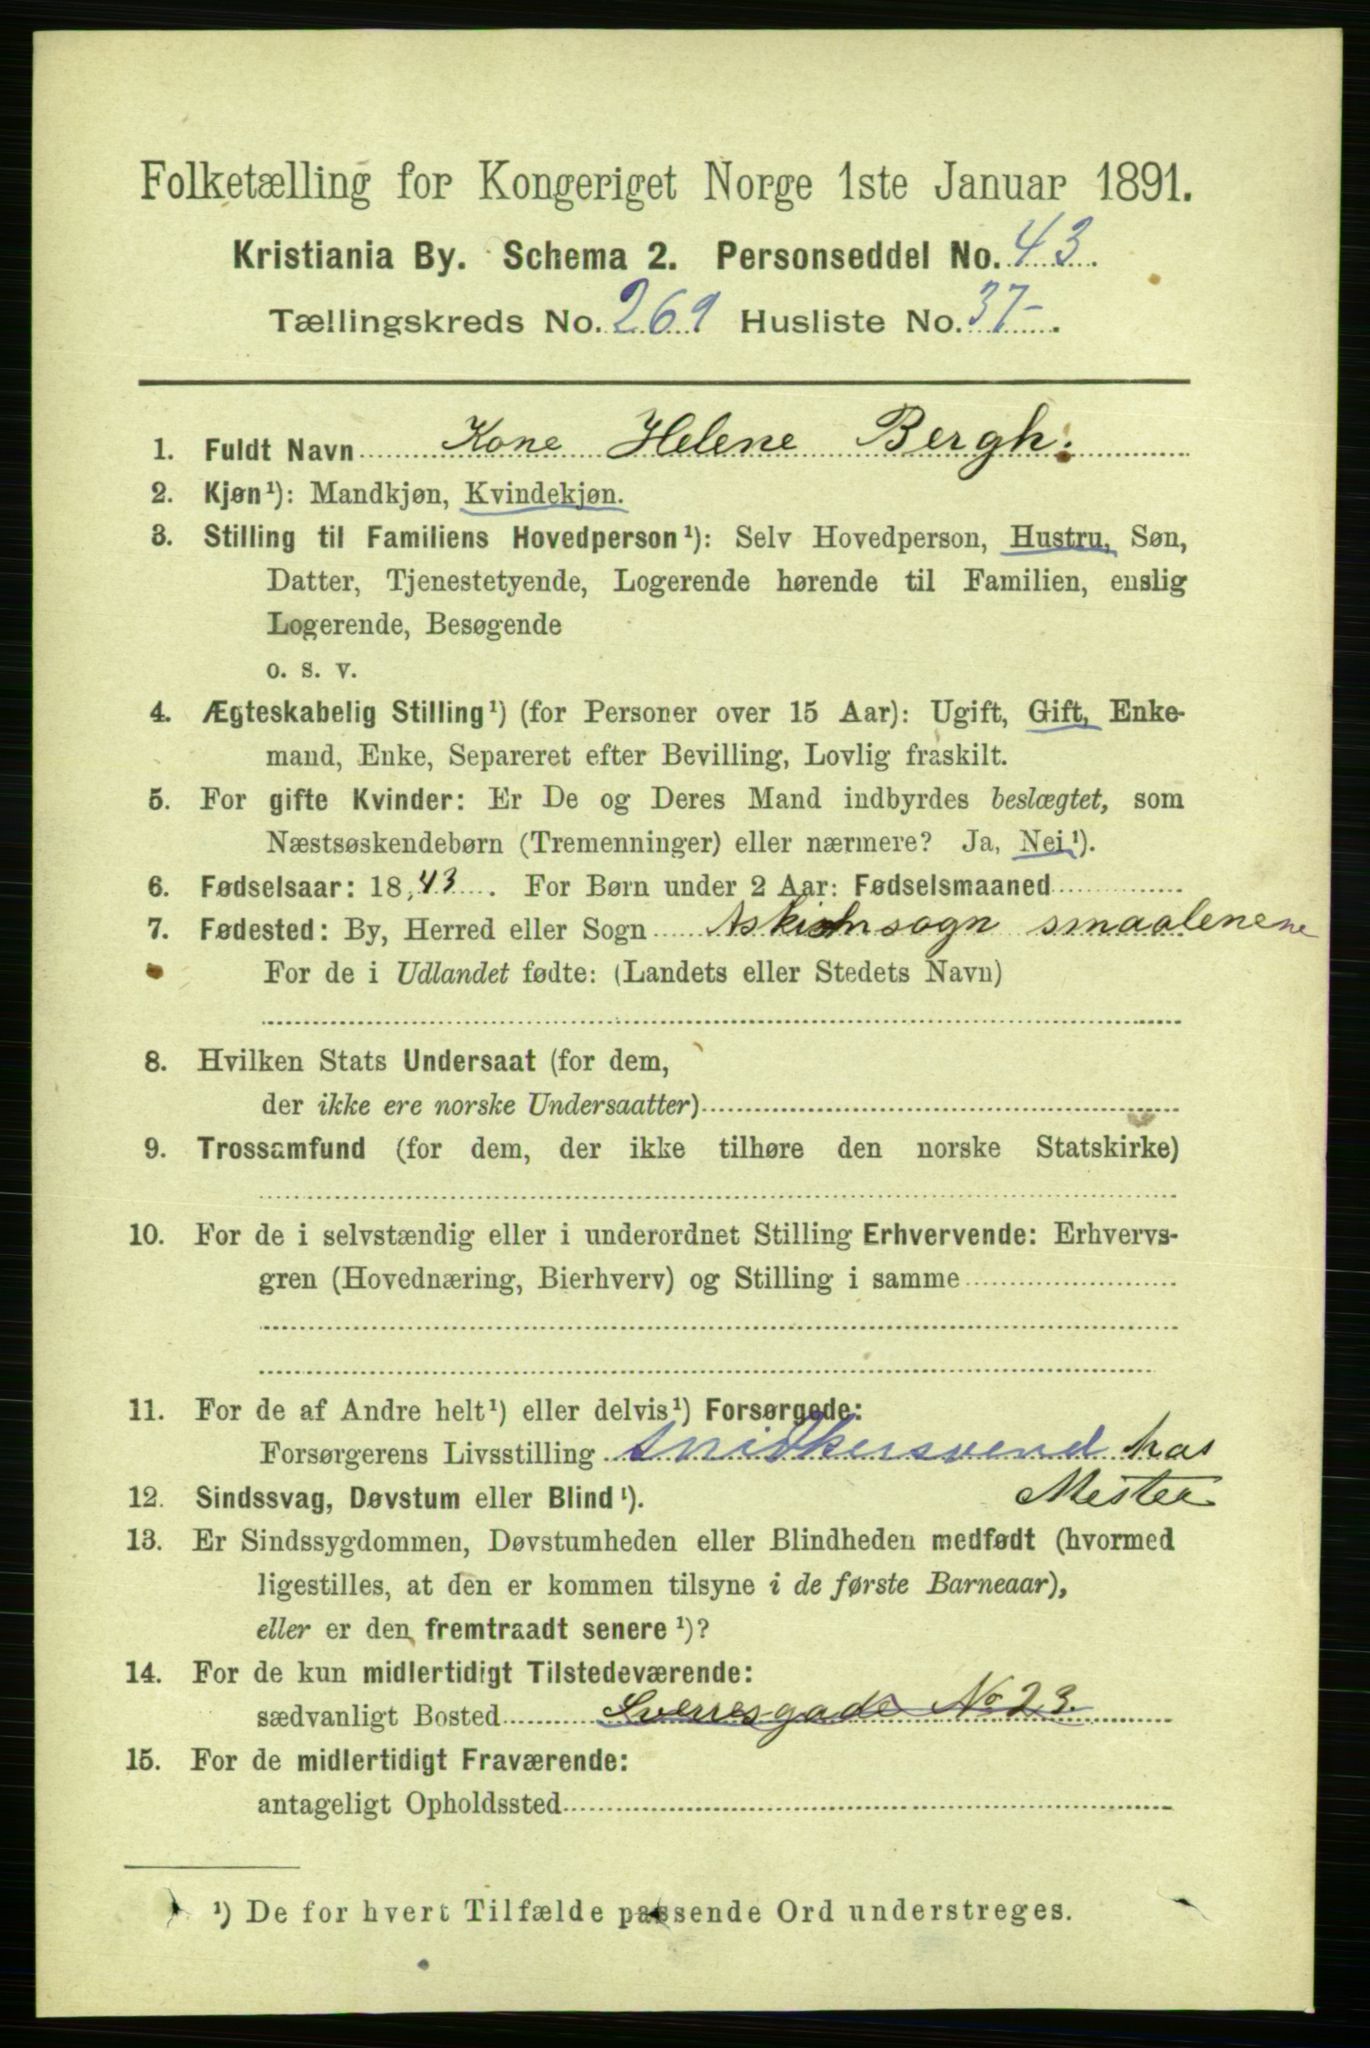 Folketælling for Kongeriget Norge 1ste Januar 1891.
Kristiania By. Schema 2. Personseddel No. 43.
Tællingskreds No. 269 Husliste No. 37-.
1. Fuldt Navn Kone Helene Bergh.
2. Kjøn¹): Mandkjøn, Kvindekjøn.
3. Stilling til Familiens Hovedperson¹): Selv Hovedperson, Hustru, Søn,
Datter, Tjenestetyende, Logerende hørende til Familien, enslig
Logerende, Besøgende
o. s. v.
4. Ægteskabelig Stilling¹) (for Personer over 15 Aar): Ugift, Gift, Enke-
mand, Enke, Separeret efter Bevilling, Lovlig fraskilt.
5. For gifte Kvinder: Er De og Deres Mand indbyrdes beslægtet, som
Næstsøskendebørn (Tremenninger) eller nærmere? Ja, Nei¹).
6. Fødselsaar: 1843. For Børn under 2 Aar: Fødselsmaaned
7. Fødested: By, Herred eller Sogn Askim sogn smaalenene
For de i Udlandet fødte: (Landets eller Stedets Navn)
8. Hvilken Stats Undersaat (for dem,
der ikke ere norske Undersaatter)
9. Trossamfund (for dem, der ikke tilhøre den norske Statskirke)
10. For de i selvstændig eller i underordnet Stilling Erhvervende: Erhvervs-
gren (Hovednæring, Bierhverv) og Stilling i samme
11. For de af Andre helt¹) eller delvis¹) Forsørgede:
Forsørgerens Livsstilling Snidkersvend hos
Mester
12. Sindssvag, Døvstum eller Blind¹).
13. Er Sindssygdommen, Døvstumheden eller Blindheden medfødt (hvormed
ligestilles, at den er kommen tilsyne i de første Barneaar),
eller er den fremtraadt senere¹)?
14. For de kun midlertidigt Tilstedeværende:
sædvanligt Bosted Sverresgade No 23.
15. For de midlertidigt Fraværende:
antageligt Opholdssted
¹) De for hvert Tilfælde passende Ord understreges.